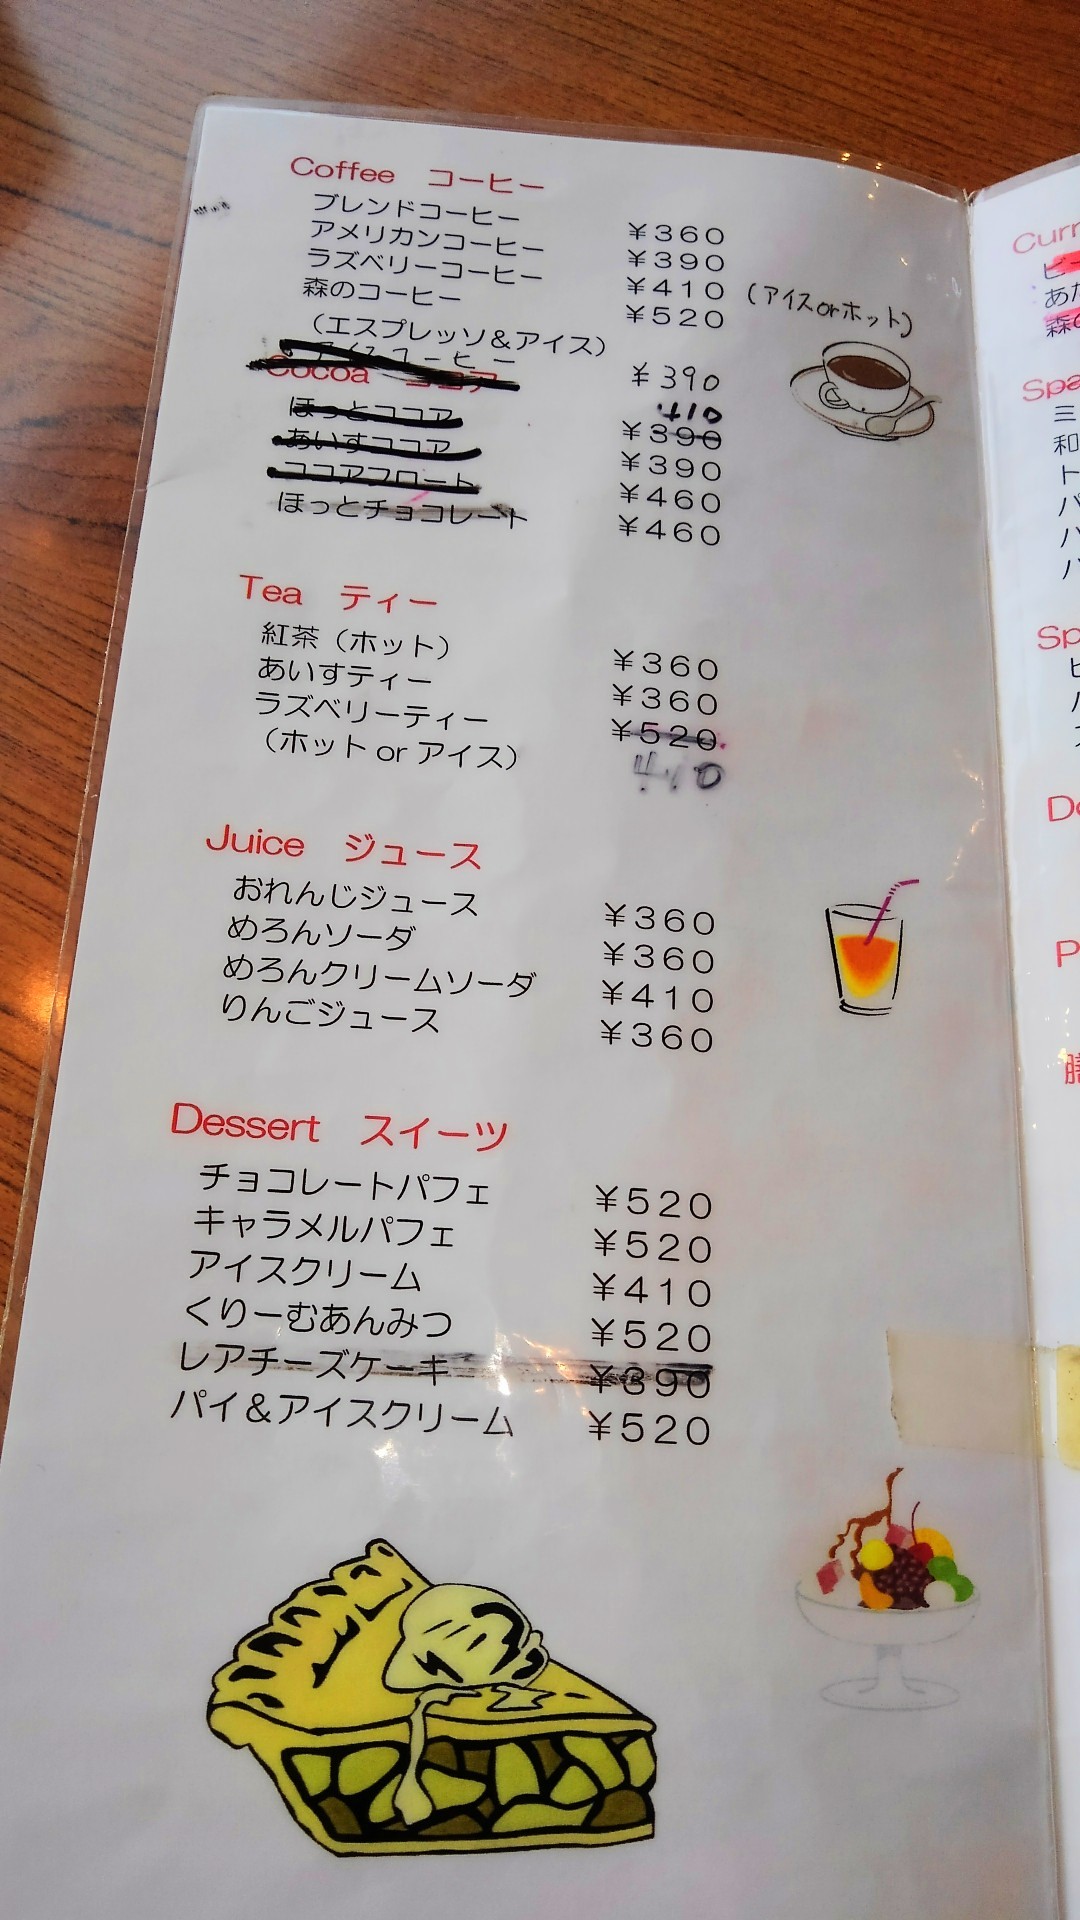 Coffee コーヒー
ブレンドコーヒー ¥360
アメリカンコーヒー ¥390
ラズベリーコーヒー ¥410 (アイスorホット)
森のコーヒー ¥520
（エスプレッソ＆アイス）
アイスコーヒー ¥390
Cocoa ココア
410
ほっとココア ¥390
あいすココア ¥390
ココアフロート ¥460
ほっとチョコレート ¥460
Tea ティー
紅茶（ホット） ¥360
あいすティー ¥360
ラズベリーティー ¥520
（ホット or アイス） 410
Juice ジュース
おれんじジュース ¥360
めろんソーダ ¥360
めろんクリームソーダ ¥410
りんごジュース ¥360
Dessert スイーツ
チョコレートパフェ ¥520
キャラメルパフェ ¥520
アイスクリーム ¥410
くりーむあんみつ ¥520
レアチーズケーキ ¥390
パイ＆アイスクリーム ¥520
Curr
ビー
あた
森の
Spa
三
和
ト
パ
パ
パ
Sp
ビ
Do
P